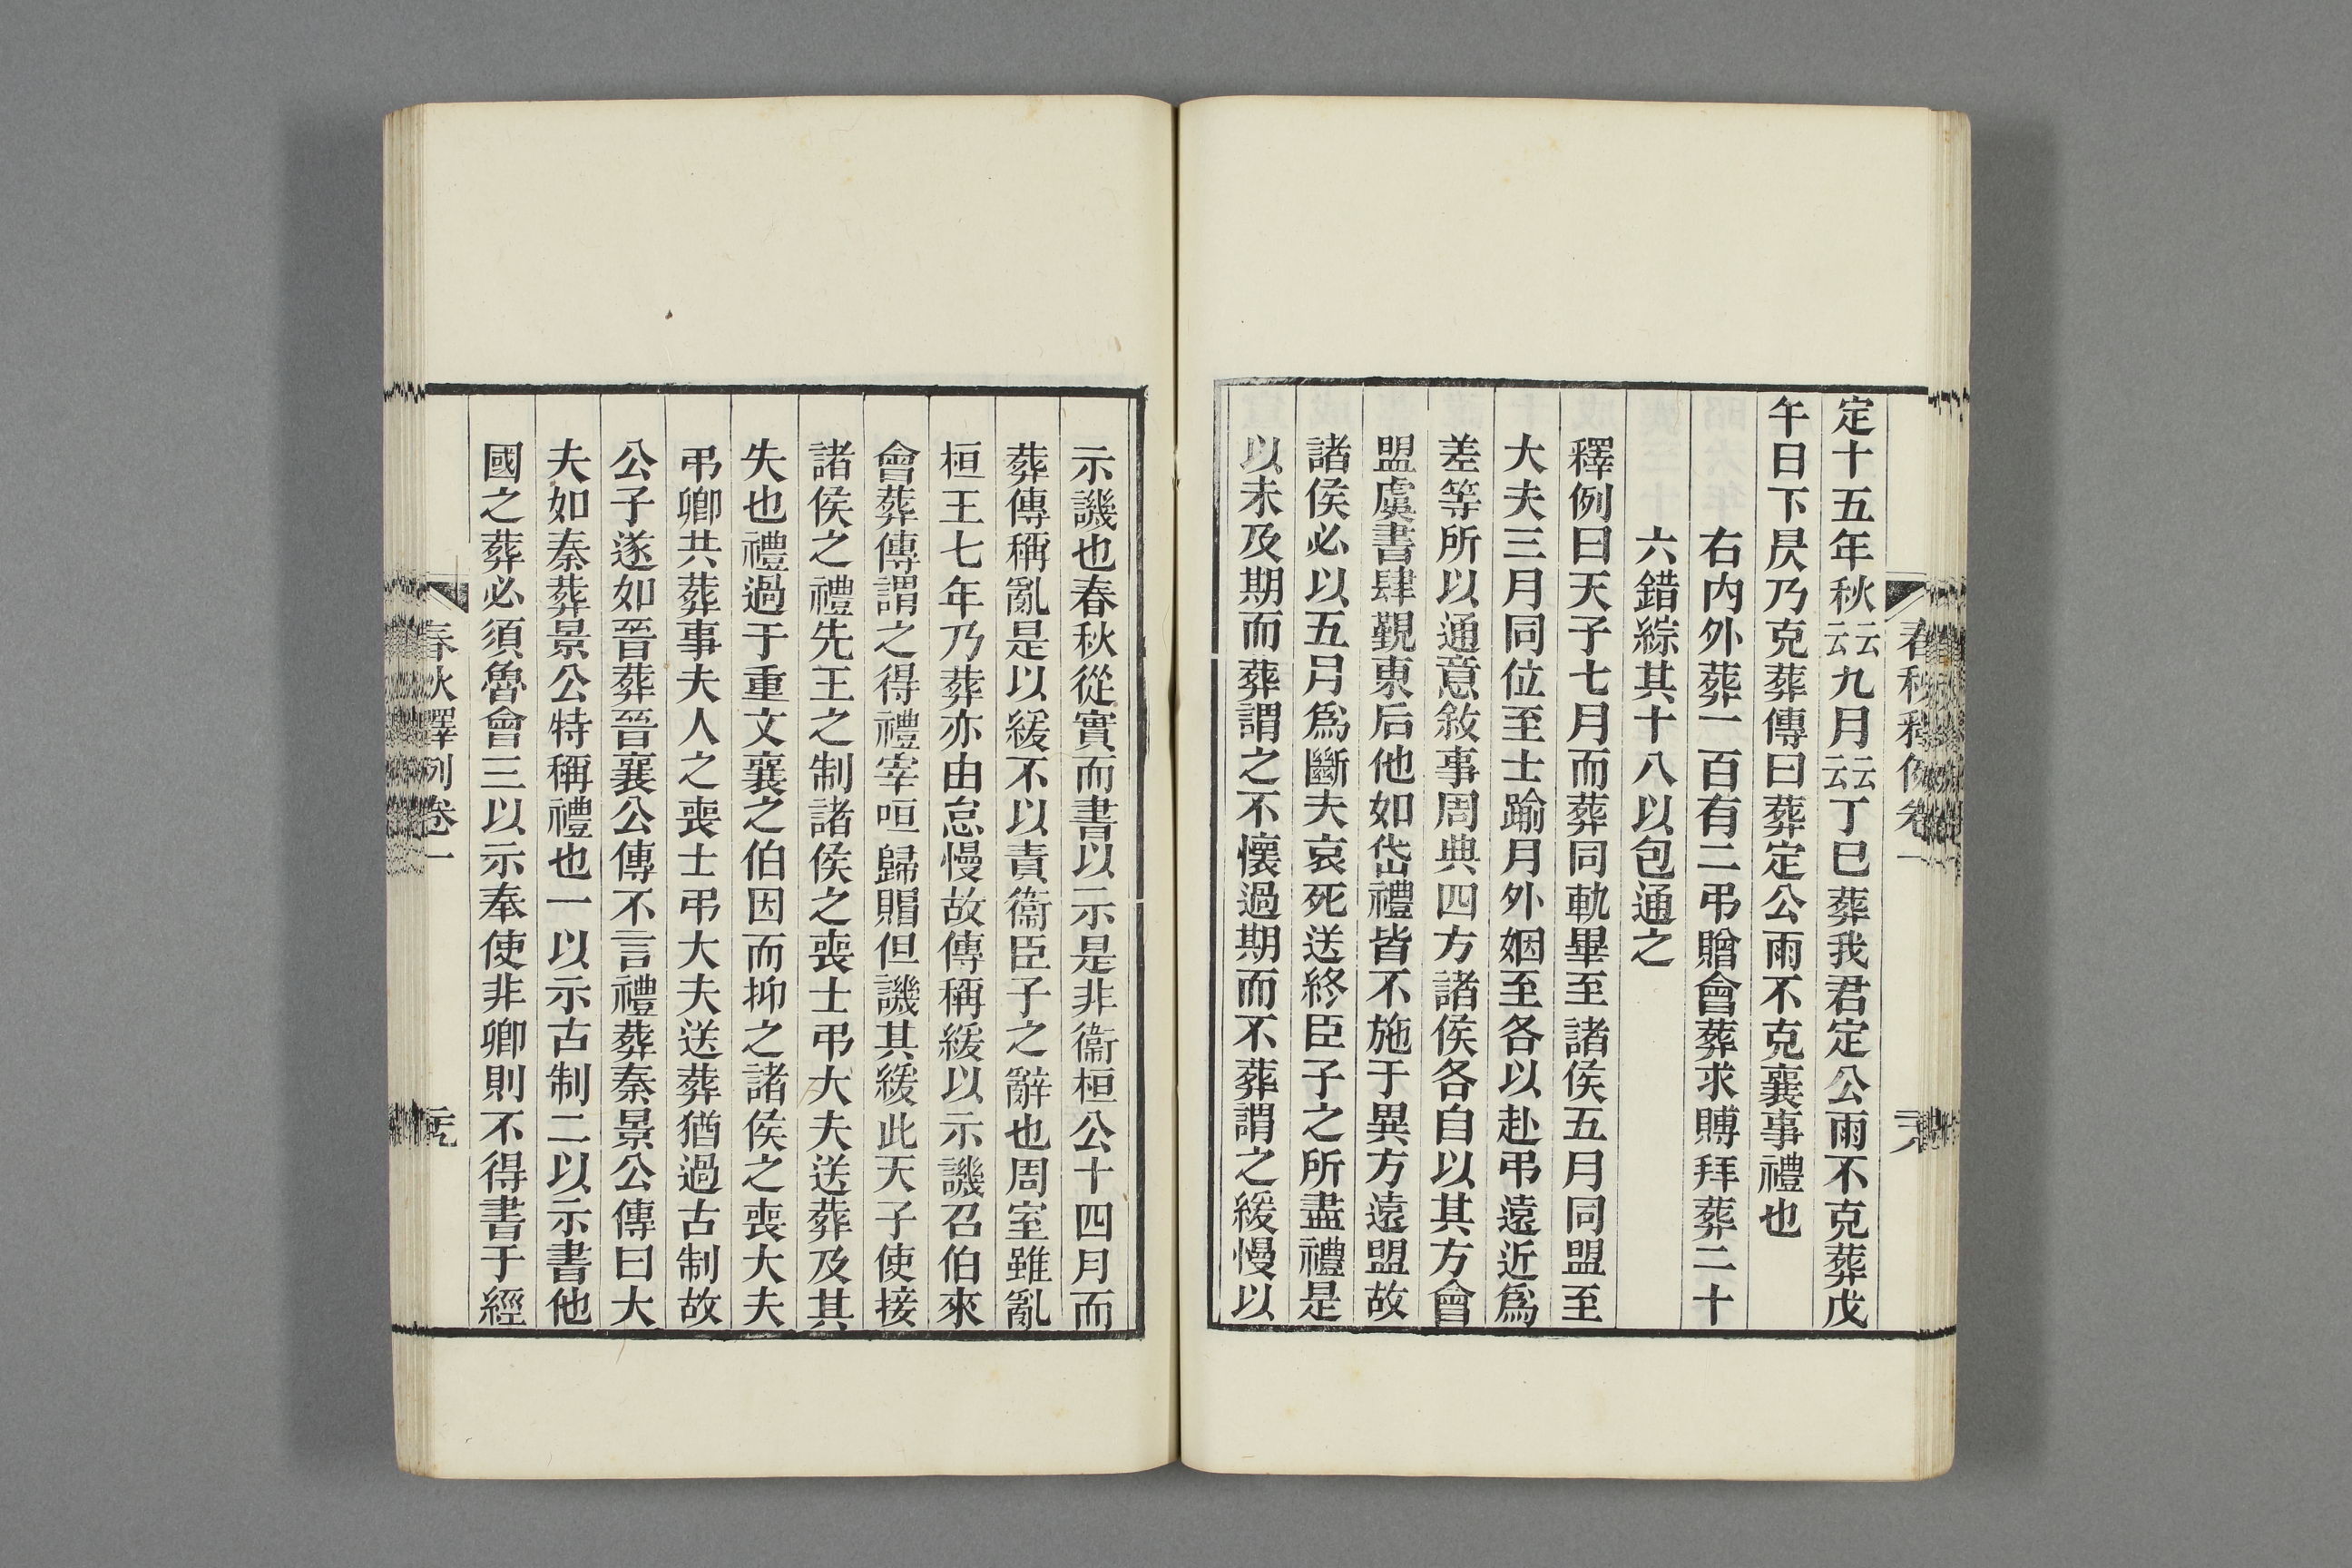 春秋釋例卷一
定十五年秋云云九月云云丁巳葬我君定公雨不克葬戊
午日下昃乃克葬傳曰葬定公雨不克襄事禮也
右内外葬一百有二弔贈會葬求賻拜葬二十
六錯綜其十八以包通之
釋例曰天子七月而葬同軌畢至諸侯五月同盟至
大夫三月同位至士踰月外姻至各以赴弔遠近爲
差等所以通意敘事周典四方諸侯各自以其方會
盟虞書肆覲東后他如岱禮皆不施于異方遠盟故
諸侯必以五月爲斷夫哀死送終臣子之所盡禮是
以未及期而葬謂之不懷過期而不葬謂之緩慢以
示譏也春秋從實而書以示是非衞桓公十四月而
葬傳稱亂是以緩不以責衞臣子之辭也周室雖亂
桓王七年乃葬亦由怠慢故傳稱緩以示譏召伯來
會葬傳謂之得禮宰咺歸賵但譏其緩此天子使接
諸侯之禮先王之制諸侯之喪士弔大夫送葬及其
失也禮過于重文襄之伯因而抑之諸侯之喪大夫
弔卿共葬事夫人之喪士弔大夫送葬猶過古制故
公子遂如晉葬晉襄公傳不言禮葬秦景公傳曰大
夫如秦葬景公特稱禮也一以示古制二以示書他
國之葬必須魯會三以示奉使非卿則不得書于經
春秋釋例卷一